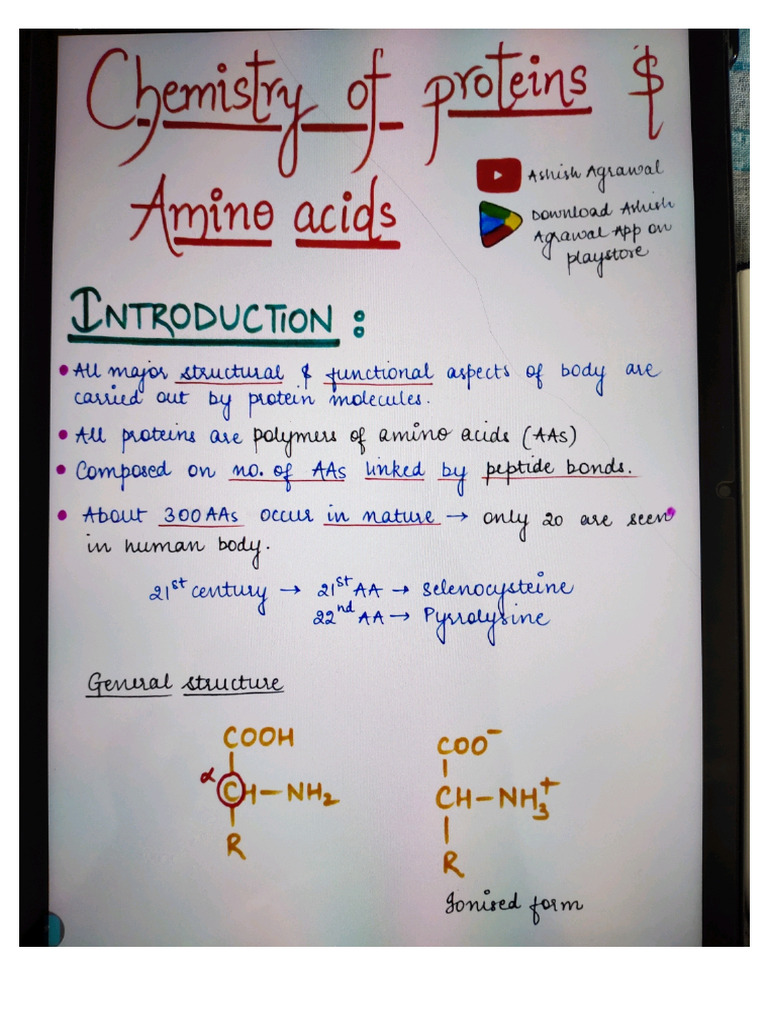 Chemistry of proteins &
Amino acids
Ashish Agrawal
Download Ashish
Agrawal App on
playstore
INTRODUCTION :
• All major structural & functional aspects of body are
carried out by protein molecules.
• All proteins are polymers of amino acids (AAs)
• Composed on no. of AAs linked by peptide bonds.
• About 300 AAs occur in nature → only 20 are seen
in human body.
21st century → 21st AA → selenocysteine
22nd AA → Pyrrolysine
General structure
COOH
α CH-NH₂
R
COO⁻
CH-NH₃⁺
R
Ionised form